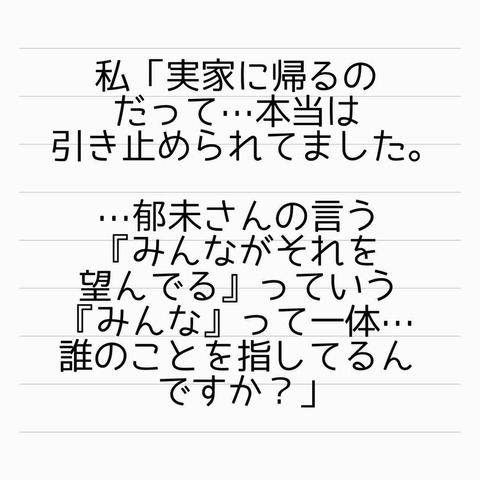 私「実家に帰るの
だって…本当は
引き止められてました。
…郁未さんの言う
『みんながそれを
望んでる』っていう
『みんな』って一体…
誰のことを指してるん
ですか？」